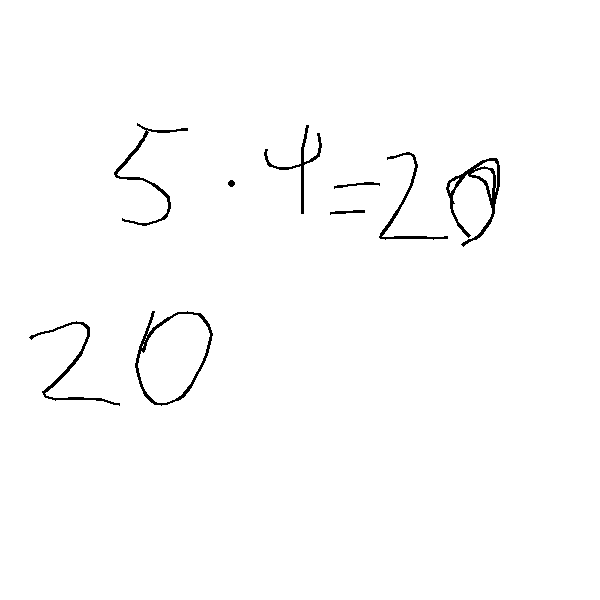 5 · 4 = 20
20